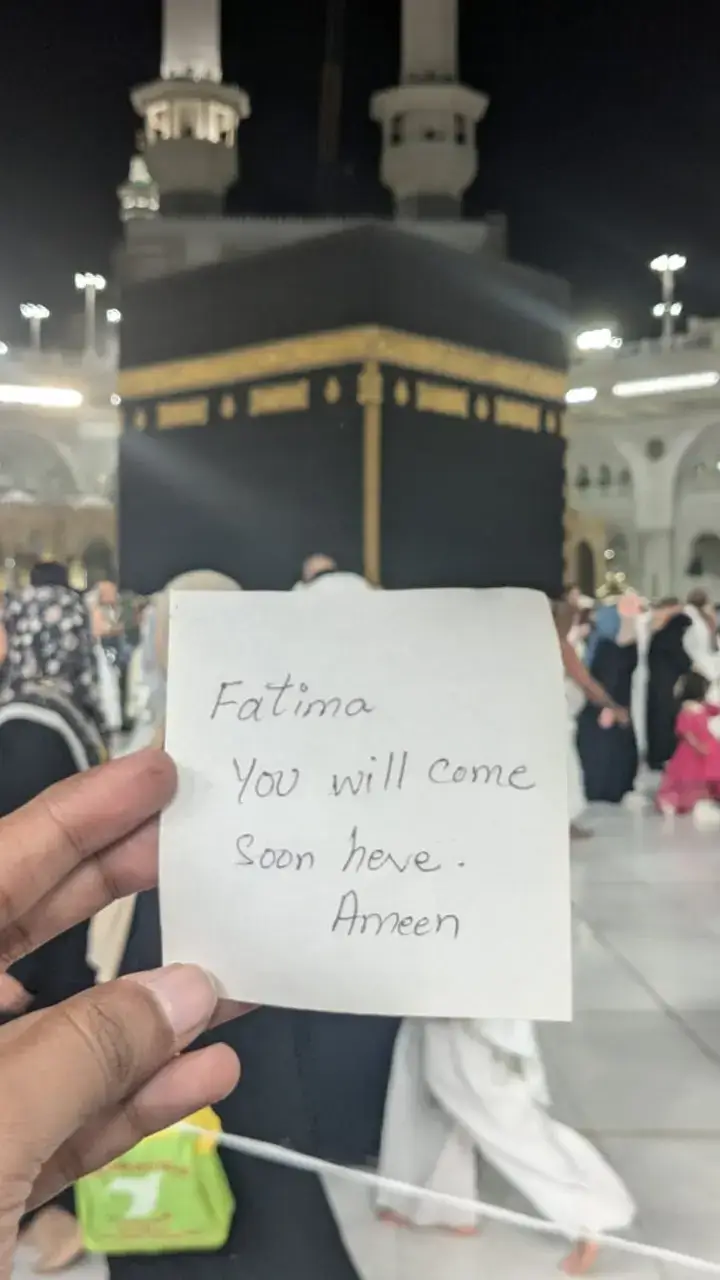 Fatima
You will come
Soon here.
Ameen